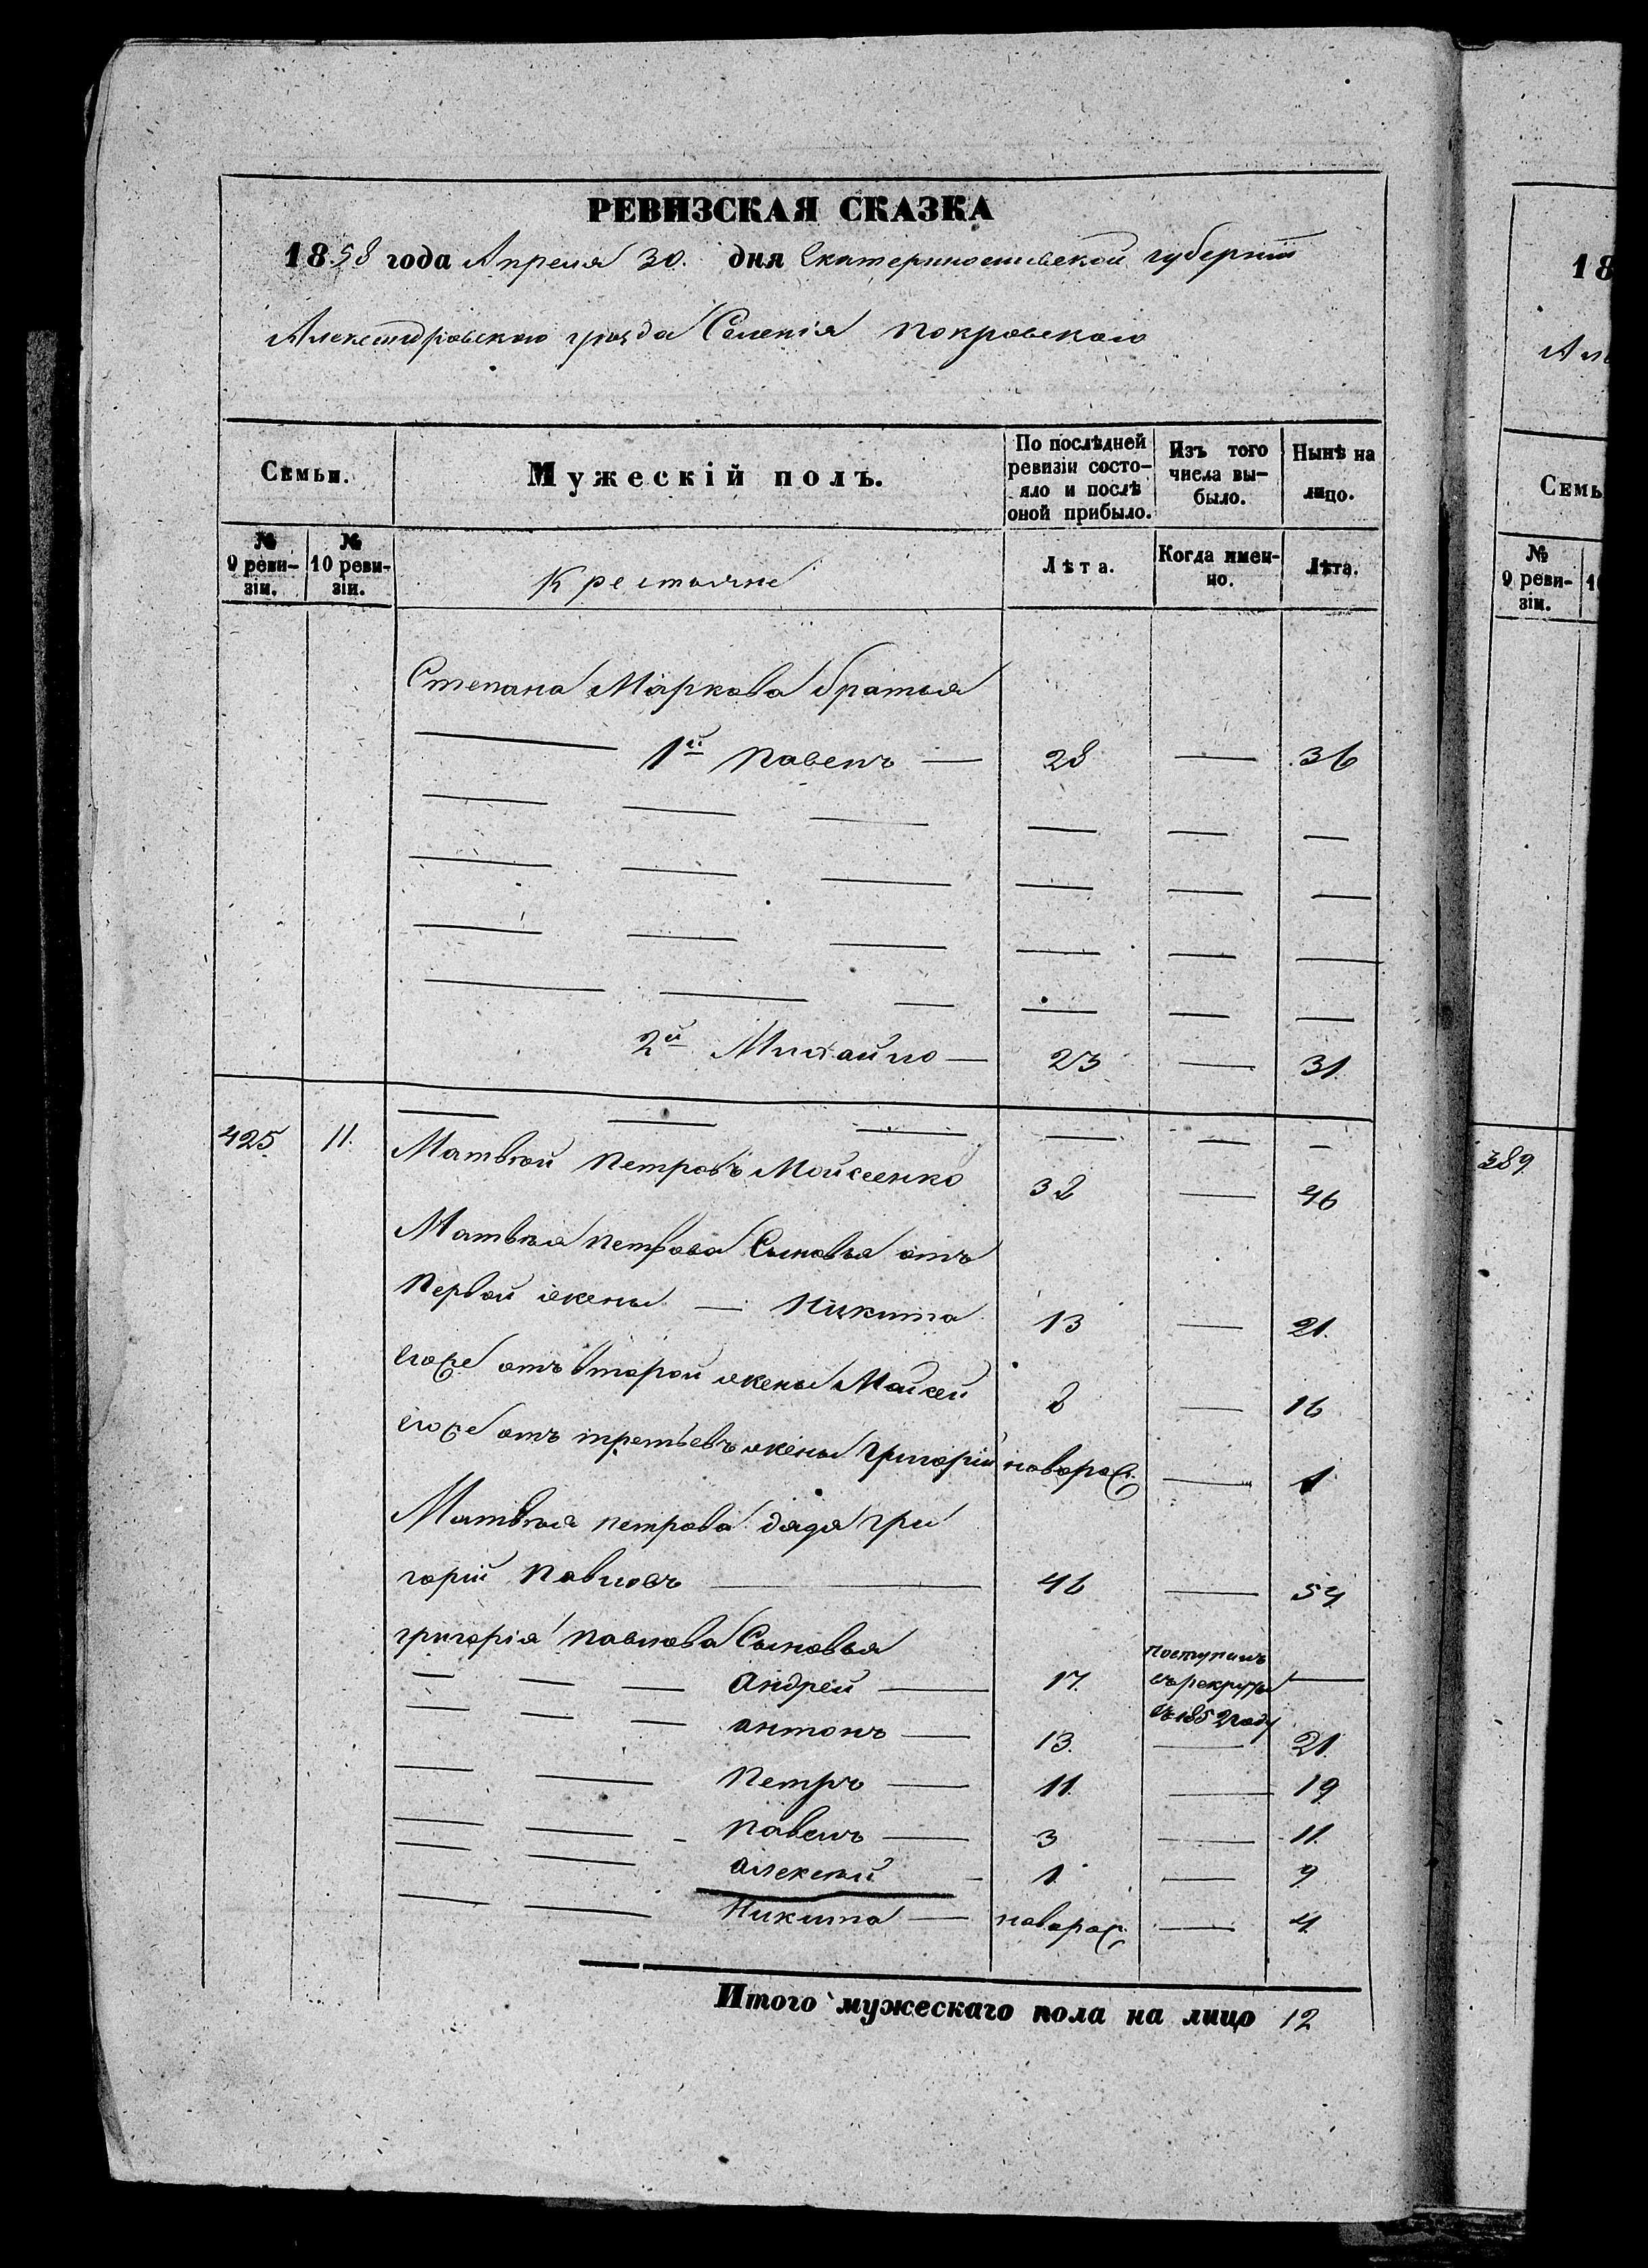 РЕВИЗСКАЯ СКАЗКА
1858 года Апреля 30. дня Екатеринославской губернiи
Александровского уезда Селенiя Покровского
Семьи.
Мужескiй полъ.
По послѣдней ревизiи состояло и послѣ оной прибыло.
Изъ того числа выбыло.
Нынѣ на лицо.
№ 9 ревизiи.
№ 10 ревизiи.
Крестьяне
Лѣта.
Когда именно.
Лѣта.
Степана Маркова братья
1й Павелъ — 28 — 36
2й Михайло — 23 — 31
425 11. Матвѣй Петровъ Мойсеенко 38 — 46
Матвѣя Петрова Сыновья отъ
Первой жены — Никита 13 — 21.
Егоже отъ второй жены Мойсей 8 — 16
Егоже отъ третьевъ жены Григорiй новорож. — 1
Матвѣя Петрова дядя Гри
горiй Павловъ — 46 — 54
Григорiя Павлова Сыновья
Андрей — 17. поступилъ въ рекруты въ 1852 году —
Антонъ — 13. — 21.
Петръ — 11. — 19
Павелъ — 3 — 11.
Алексѣй — 1. — 9
Никита — новорож. — 4.
Итого мужескаго пола на лицо 12
18
Але
Семь
№ 9 ревизiи.
1
389.